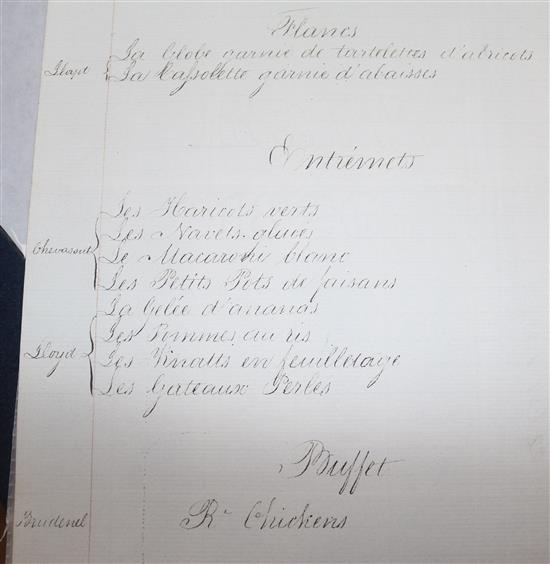 Flancs
La Globe garnie de tartelettes d'abricots
Lloyd
La Cassolette garnie d'abaisses
Entrémets
Les Haricots verts
Les Navets glacés
Chevassut
Le Macaroni blanc
Les Petits Pots de faisans
La Gelée d'ananas
Les Pommes au ris
Lloyd
Les en feuilletage
Les Gateaux Perlés
Buffet
Brudenel
Rt Chickens